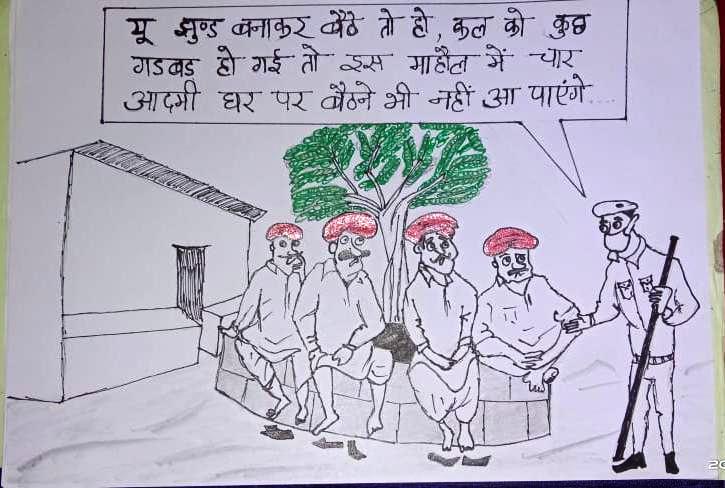 यू झुण्ड बनाकर बैठे तो हो, कल को कुछ
गडबड हो गई तो इस माहौल में चार
आदमी घर पर बैठने भी नहीं आ पाएंगे....